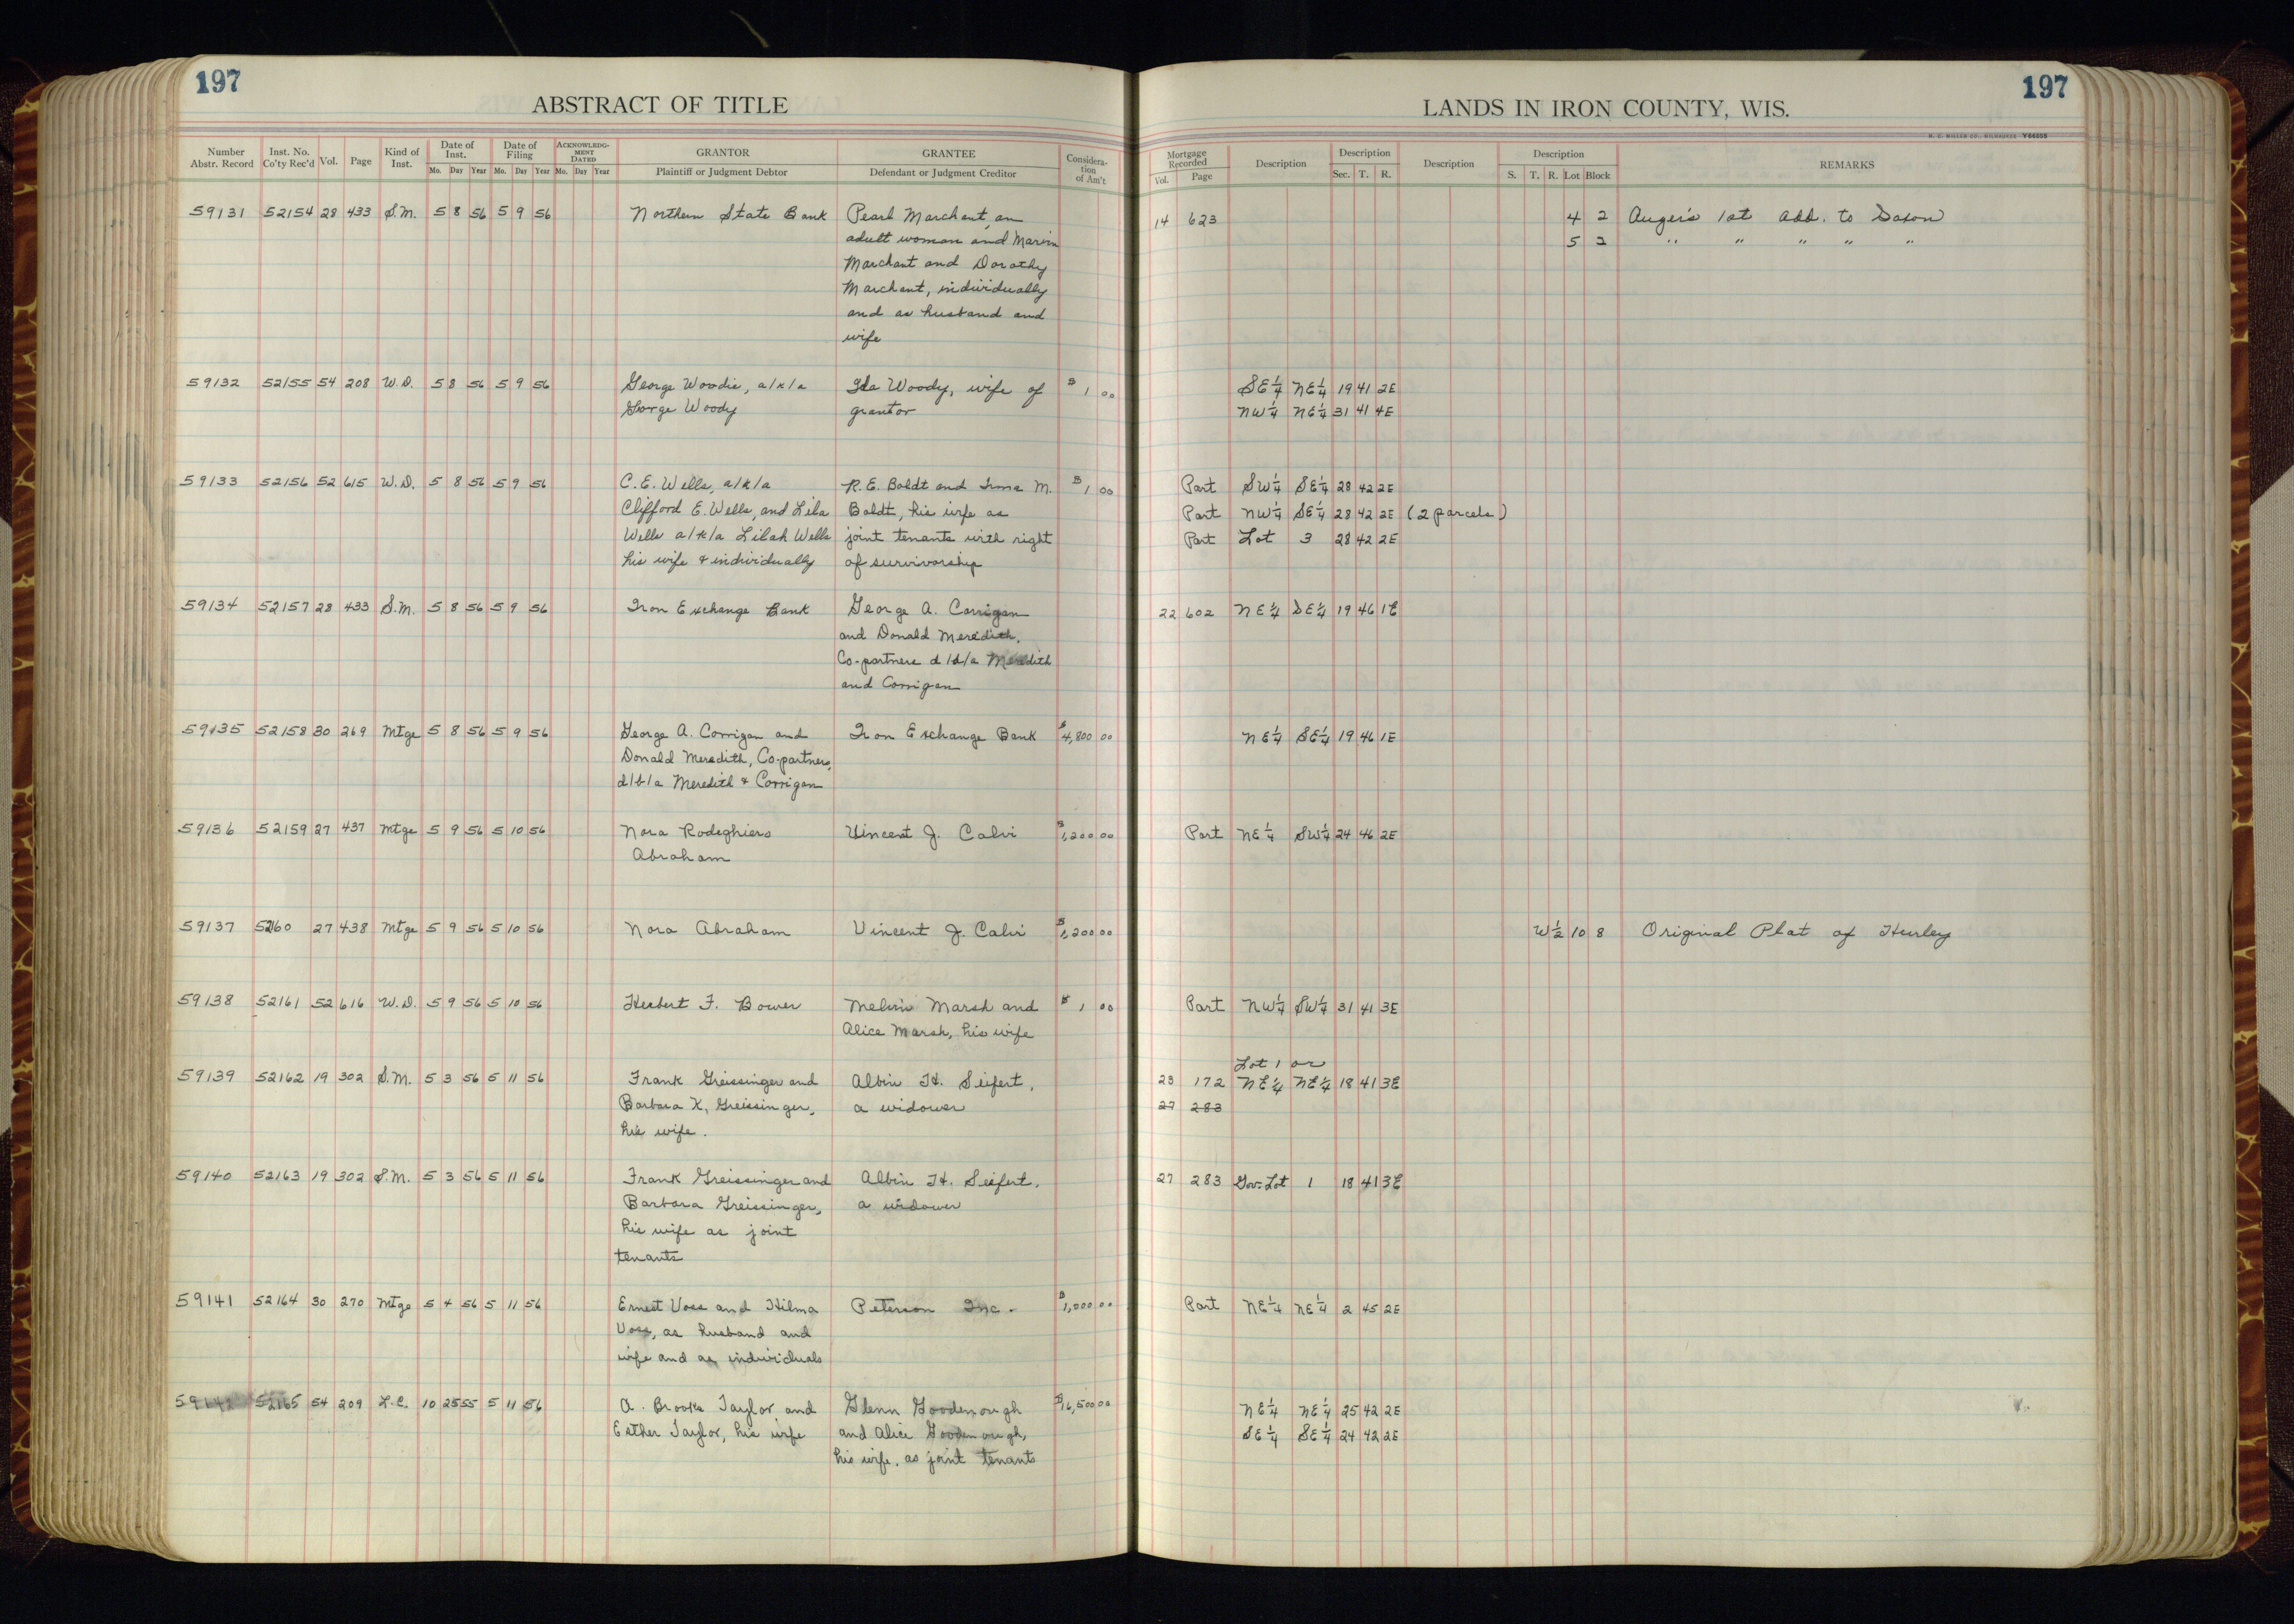 197
ABSTRACT OF TITLE
Number Abstr. Record Inst. No. Co'ty Rec'd Vol. Page Kind of Inst. Date of Inst. Date of Filing ACKNOWLEDGMENT DATED GRANTOR GRANTEE Consideration of Am't
Mo. Day Year Mo. Day Year Mo. Day Year Plaintiff or Judgment Debtor Defendant or Judgment Creditor
59131 52154 28 433 S.M. 5 8 56 5 9 56 Northern State Bank Pearl Marchant, an
adult woman and Marvin
Marchant and Dorothy
Marchant, individually
and as husband and
wife
59132 52155 54 208 W.D. 5 8 56 5 9 56 George Woodie, a/k/a Ida Woody, wife of $1 00
George Woody grantor
59133 52156 52 615 W.D. 5 8 56 5 9 56 C.E. Wells, a/k/a R.E. Boldt and Irma M. $1 00
Clifford E. Wells, and Lila Boldt, his wife as
Wells a/k/a Lilah Wells joint tenants with right
his wife & individually of survivorship
59134 52157 28 433 S.M. 5 8 56 5 9 56 Iron Exchange Bank George A. Corrigan
and Donald Meredith,
Co-partners d/b/a Meredith
and Corrigan
59135 52158 30 269 Mtge 5 8 56 5 9 56 George A. Corrigan and Iron Exchange Bank $4,800 00
Donald Meredith, Co-partners,
d/b/a Meredith & Corrigan
59136 52159 27 437 Mtge 5 9 56 5 10 56 Nora Rodeghiero Vincent J. Calvi $1,200 00
Abraham
59137 52160 27 438 Mtge 5 9 56 5 10 56 Nora Abraham Vincent J. Calvi $1,200 00
59138 52161 52 616 W.D. 5 9 56 5 10 56 Herbert F. Bower Melvin Marsh and $1 00
Alice Marsh, his wife
59139 52162 19 302 S.M. 5 3 56 5 11 56 Frank Greissinger and Albin H. Seifert,
Barbara K. Greissinger, a widower
his wife.
59140 52163 19 302 S.M. 5 3 56 5 11 56 Frank Greissinger and Albin H. Seifert,
Barbara Greissinger, a widower
his wife as joint
tenants
59141 52164 30 270 Mtge 5 4 56 5 11 56 Ernest Voss and Hilma Peterson Inc. $1,000 00
Voss, as husband and
wife and as individuals
59142 52165 54 209 L.C. 10 25 55 5 11 56 A. Brooks Taylor and Glenn Goodenough $16,500 00
Esther Taylor, his wife and Alice Goodenough,
his wife, as joint tenants
197
LANDS IN IRON COUNTY, WIS.
H. C. MILLER CO., MILWAUKEE
Mortgage Recorded Description Description Description Description REMARKS
Vol. Page Sec. T. R. S. T. R. Lot Block
14 623 4 2 Auger's 1st Add. to Saxon
5 2 " " " " "
SE¼ NE¼ 19 41 2E
NW¼ NE¼ 31 41 4E
Part SW¼ SE¼ 28 42 2E
Part NW¼ SE¼ 28 42 2E (2 parcels)
Part Lot 3 28 42 2E
22 602 NE¼ SE¼ 19 46 1E
NE¼ SE¼ 19 46 1E
Part NE¼ SW¼ 24 46 2E
W½ 10 8 Original Plat of Hurley
Part NW¼ SW¼ 31 41 3E
Lot 1 or
23 172 NE¼ NE¼ 18 41 3E
27 283
27 283 Gov. Lot 1 18 41 3E
Part NE¼ NE¼ 2 45 2E
NE¼ NE¼ 25 42 2E
SE¼ SE¼ 24 42 2E